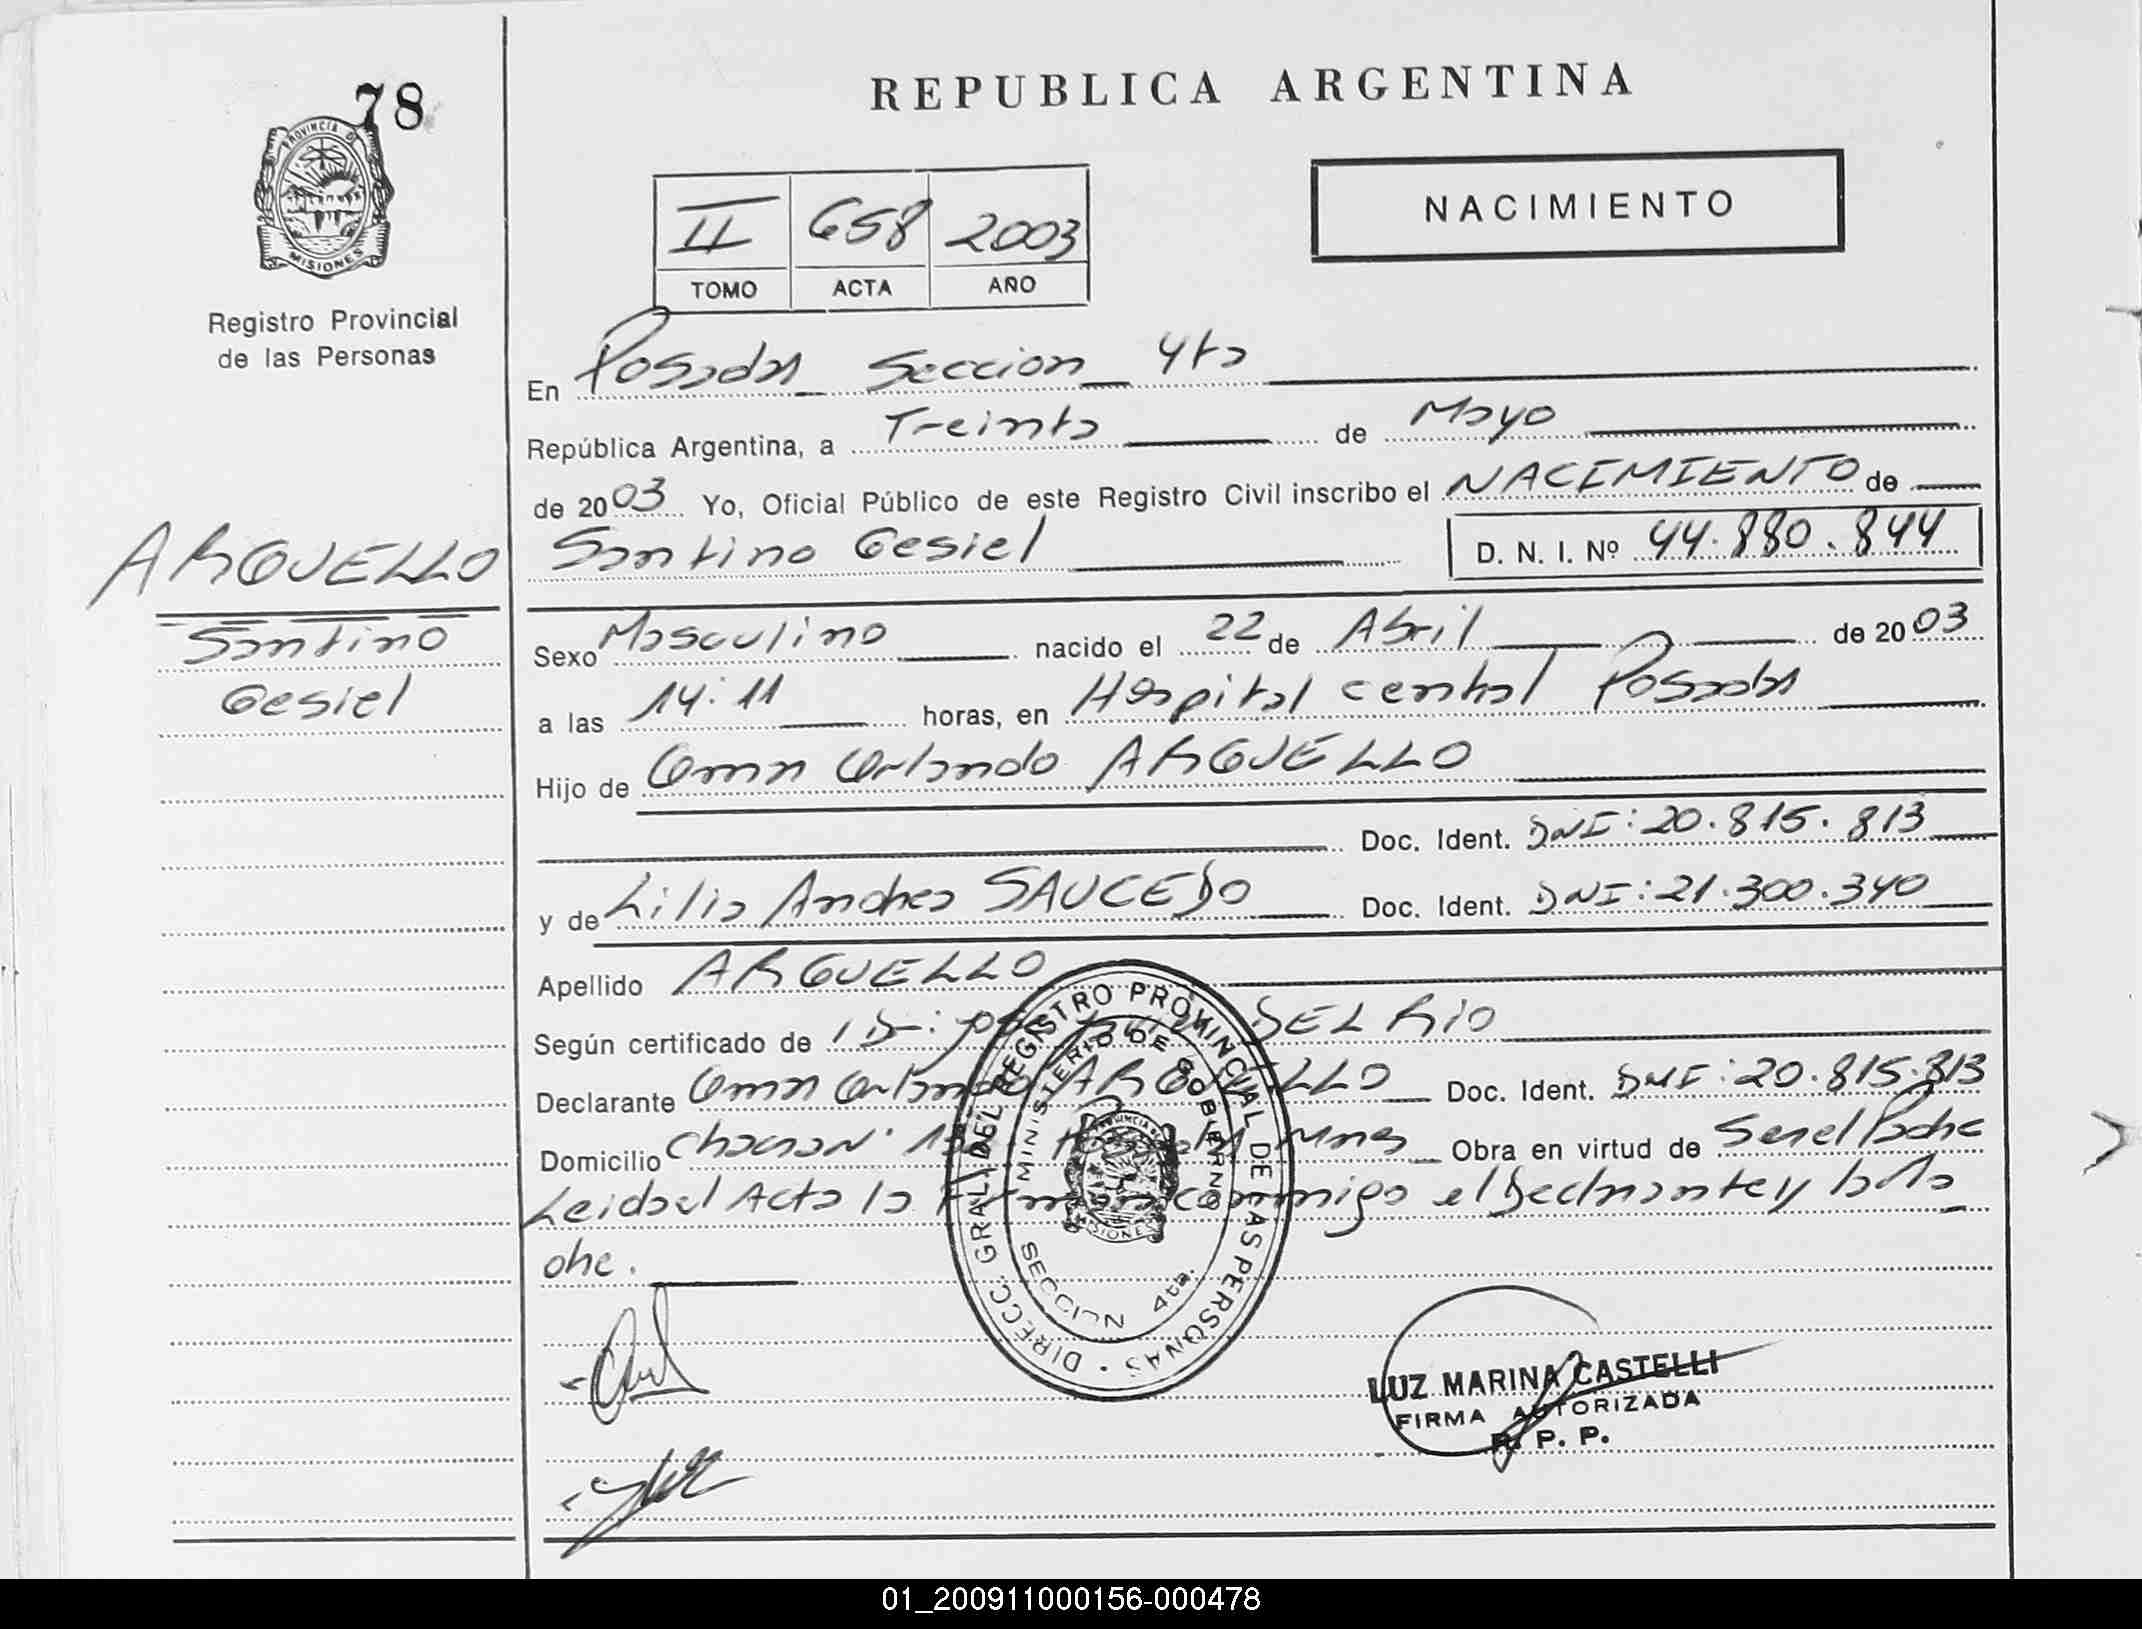 REPUBLICA ARGENTINA
78
PROVINCIA DE
MISIONES
Registro Provincial
de las Personas
II 658 2003
TOMO ACTA AÑO
NACIMIENTO
En Posadas Seccion 4ta
República Argentina, a Treinta de Mayo
de 2003 Yo, Oficial Público de este Registro Civil inscribo el NACIMIENTO de
Santino Gesiel D. N. I. Nº 44.880.844
ARGUELLO
Santino
Gesiel
Sexo Masculino nacido el 22 de Abril de 2003
a las 14:11 horas, en Hospital central Posadas
Hijo de Omar Orlando ARGUELLO
Doc. Ident. DNI: 20.815.813
y de Lilia Andrea SAUCEDO Doc. Ident. DNI: 21.300.340
Apellido ARGUELLO
Según certificado de DEL RIO
Declarante Omar Orlando ARGUELLO Doc. Ident. DNI: 20.815.813
Domicilio Mnes Obra en virtud de Ser el Padre
Leida el Acta la conmigo el Declarante y la
DIRECC. GRAL. DEL REGISTRO PROVINCIAL DE LAS PERSONAS
MINISTERIO DE GOBIERNO
PROVINCIA DE
MISIONES
SECCION 4ta.
LUZ MARINA CASTELLI
FIRMA AUTORIZADA
R. P. P.
01_200911000156-000478